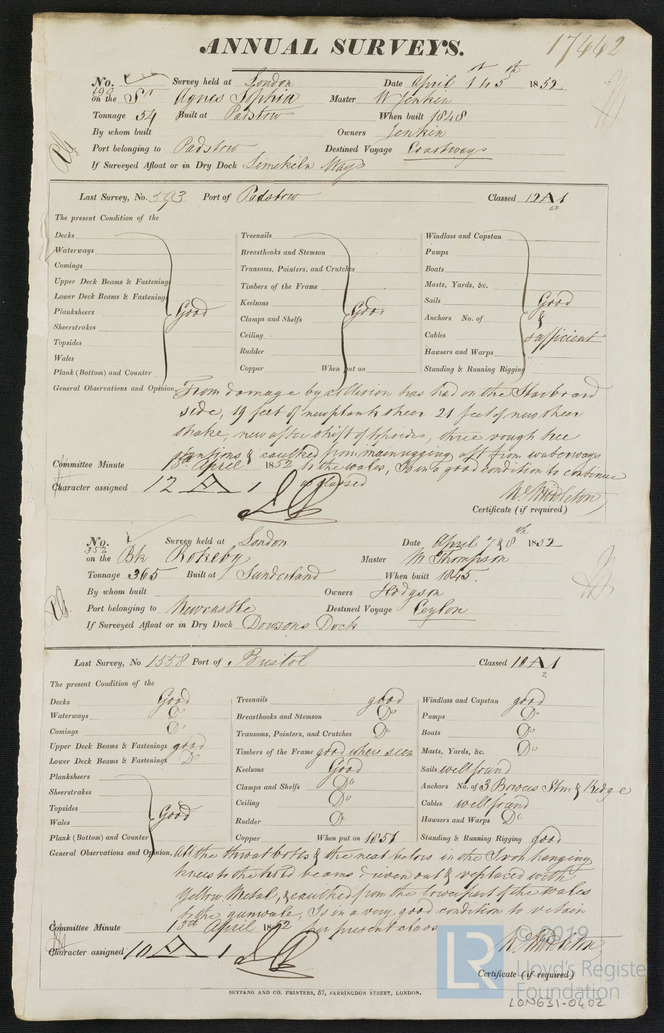 ANNUAL SURVEYS.
17442
No. 190 Survey held at London Date April 1st & 5th 1852
on the Sr Agnes Sophia Master W Jenkin
Tonnage 54 Built at Padstow When built 1848
By whom built Owners Jenkin
Port belonging to Padstow Destined Voyage Coastways
If Surveyed Afloat or in Dry Dock Limekiln Ways
Last Survey, No. 593 Port of Padstow Classed 12 A 1
The present Condition of the
Decks Treenails Windlass and Capstan
Waterways Breasthooks and Stemson Pumps
Comings Transoms, Pointers, and Crutches Boats
Upper Deck Beams & Fastenings Timbers of the Frame Masts, Yards, &c.
Lower Deck Beams & Fastenings Keelsons Sails Good
Planksheers Good Clamps and Shelfs Good Anchors No. of &
Sheerstrakes Ceiling Cables sufficient
Topsides Rudder Hawsers and Warps
Wales Copper When put on Standing & Running Rigging
Plank (Bottom) and Counter
General Observations and Opinion, From damage by collision has had on the Starboard
side, 19 feet of new plank sheer 21 feet of new sheer
strake, new after shift of topsides, three rough tree
stantions & caulked from main rigging aft from waterways
Committee Minute 13th April 1852 to the wales, Is in a good condition to continue
as classed
Character assigned 12 A 1 Wm Middleton
Certificate (if required)
No. 352 Survey held at London Date April 7 & 8th 1852
on the Bk Rokeby Master W Thompson
Tonnage 365 Built at Sunderland When built 1845
By whom built Owners Hodgson
Port belonging to Newcastle Destined Voyage Ceylon
If Surveyed Afloat or in Dry Dock Dowsons Dock
Last Survey, No 1558 Port of Bristol Classed 10 A 1
2
The present Condition of the
Decks Good Treenails good Windlass and Capstan good
Waterways Do Breasthooks and Stemson Do Pumps Do
Comings Do Transoms, Pointers, and Crutches Do Boats Do
Upper Deck Beams & Fastenings good Timbers of the Frame good where seen Masts, Yards, &c. Do
Lower Deck Beams & Fastenings Do Keelsons Good Sails well found
Planksheers Clamps and Shelfs Do Anchors No. of 3 Bowers Stm & Kedge
Sheerstrakes Ceiling Do Cables well found
Topsides Good Rudder Do Hawsers and Warps Do
Wales Copper When put on 1851 Standing & Running Rigging good
Plank (Bottom) and Counter
General Observations and Opinion, All the throat bolts & the next bolts in the Iron hanging
knees to the hold beams driven out & replaced with
Yellow Metal, & caulked from the lower part of the wales
to the gunwale, Is in a very good condition to retain
Committee Minute 13th April 1852 her present class
Character assigned 10 A 1 Wm Middleton
Certificate (if required)
SEYFANG AND CO. PRINTERS, 57, FARRINGDON STREET, LONDON.
LON631-0402
© 2019
LR
Lloyd's Register
Foundation